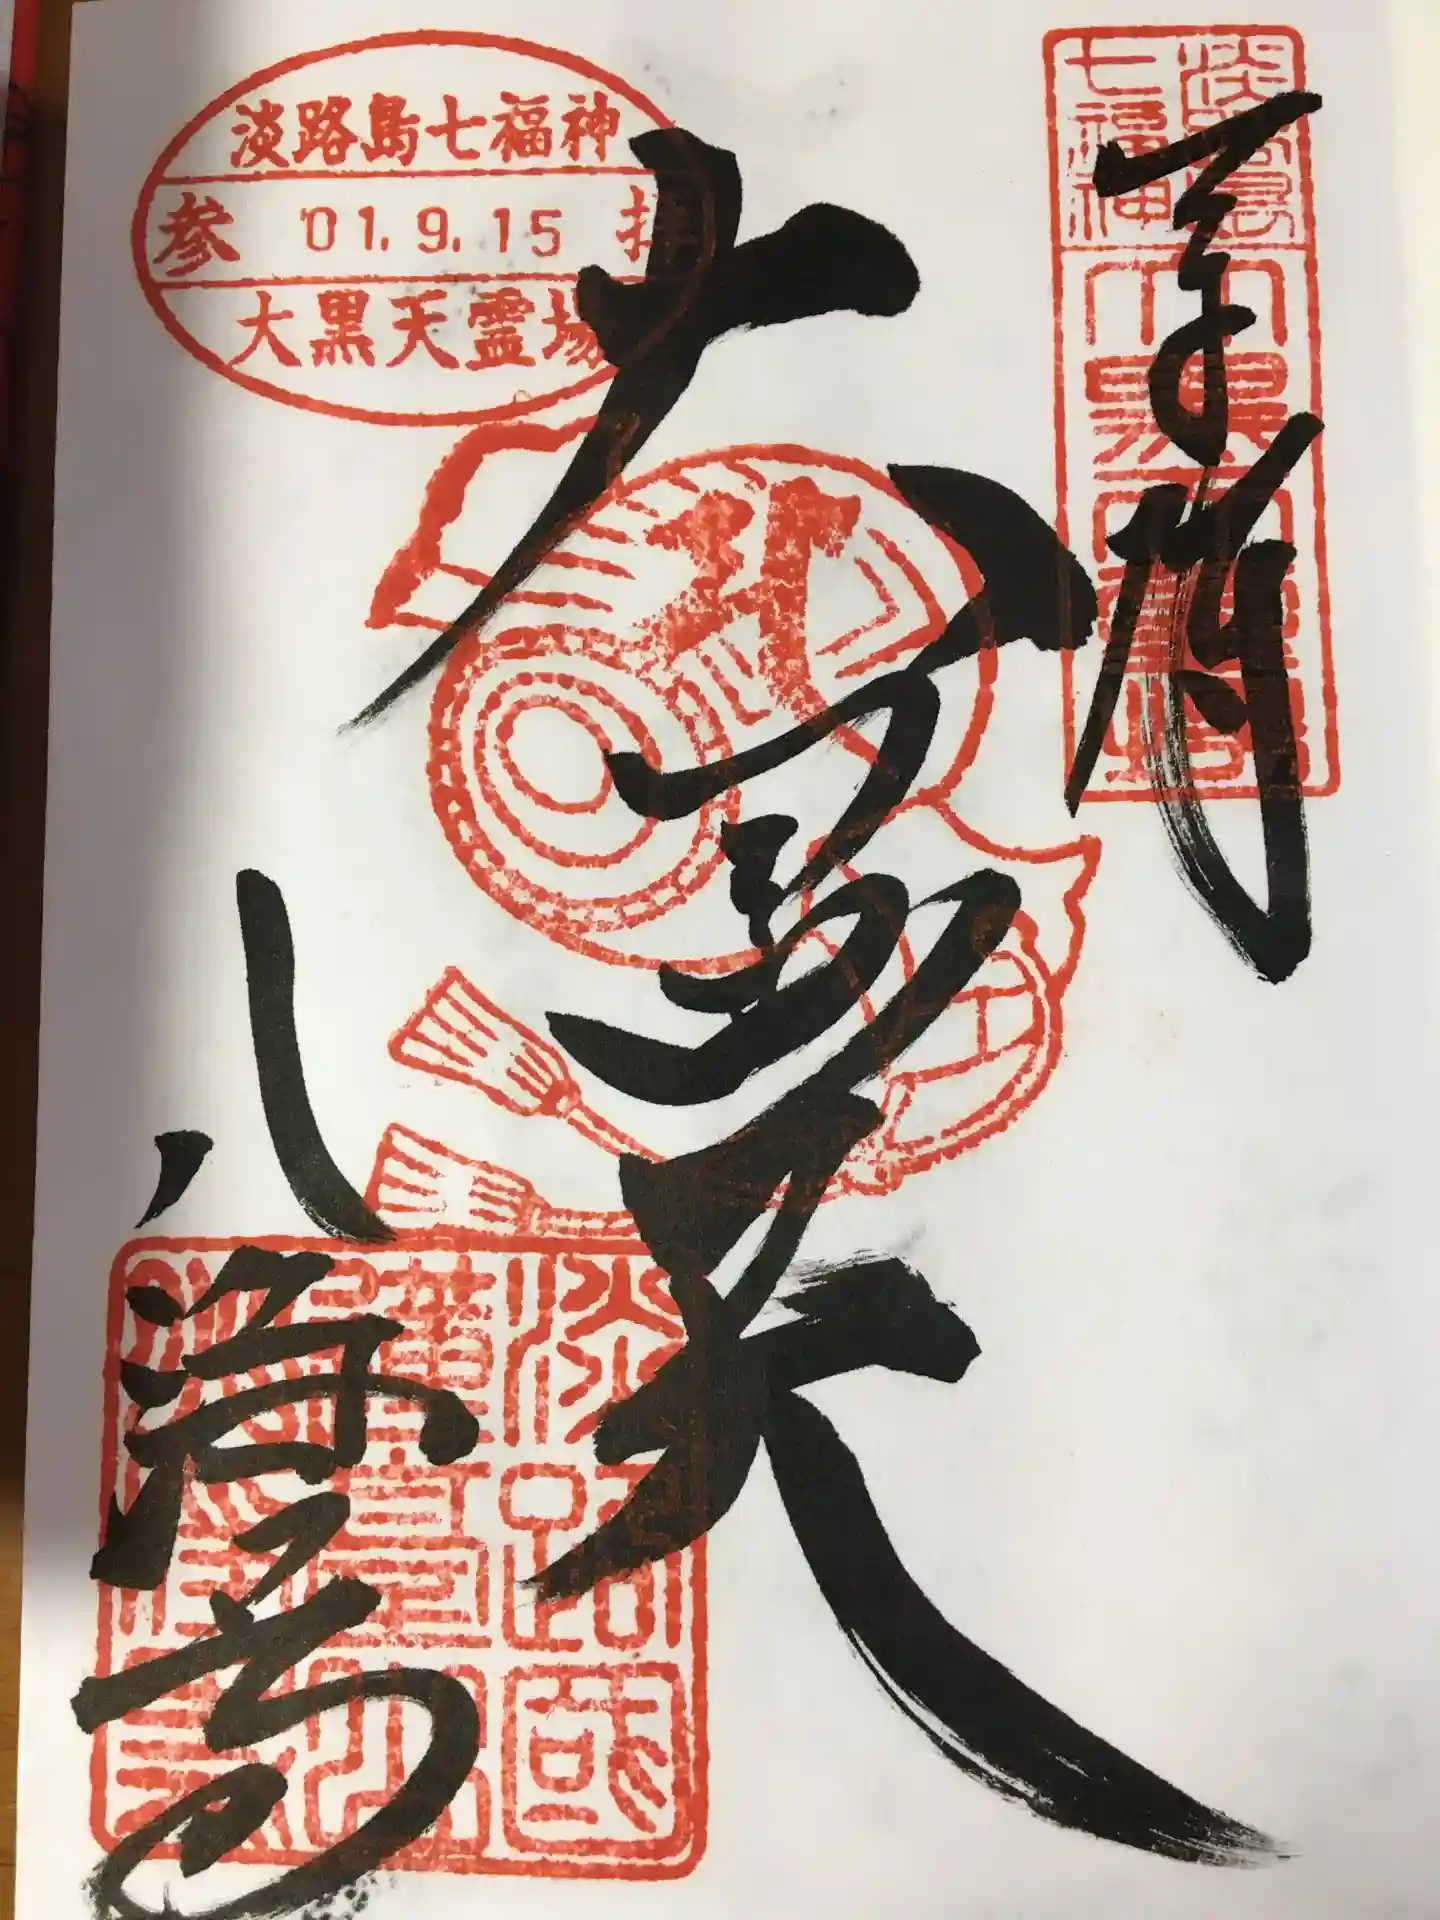 淡路島七福神
参 '01.9.15 拝
大黒天霊場
淡路島
七福神
大黒天霊場
奉拝
大黒天
八浄寺